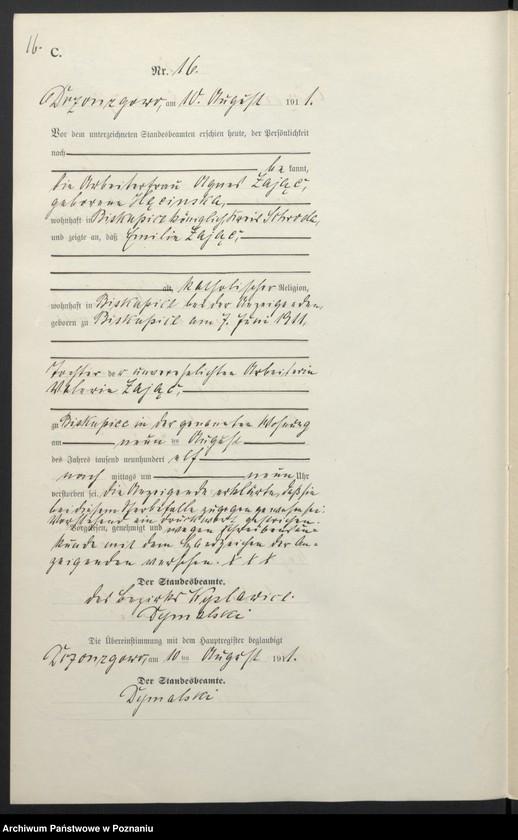 16.
C.
Nr. 16.
am 10. August 1911.
Vor dem unterzeichneten Standesbeamten erschien heute, der Persönlichkeit
nach
be kannt,
die Arbeiterfrau Agnes Zając,
geborene
wohnhaft in Biskupice Königlich Kreis Schroda,
und zeigte an, daß Emilie Zając,
alt, katholischer Religion,
wohnhaft in Biskupice bei der Anzeigenden,
geboren zu Biskupice am 7. Juni 1911,
Tochter der unverehelichten Arbeiterin
Valerie Zając,
zu Biskupice in der genannten Wohnung
am neun ten August
des Jahres tausend neunhundert elf
nach mittags um neun Uhr
verstorben sei. Die Anzeigende erklärte, daß sie
bei diesem Sterbefalle zugegen gewesen sei.
Vorstehend ein Druckwort gestrichen.
Vorgelesen, genehmigt und wegen Schreibensun-
kunde mit dem Handzeichen der An-
zeigenden versehen. X X X
Der Standesbeamte.
des Bezirks
Dymalski
Die Übereinstimmung mit dem Hauptregister beglaubigt
am 10 ten August 1911.
Der Standesbeamte.
Dymalski
Archiwum Państwowe w Poznaniu